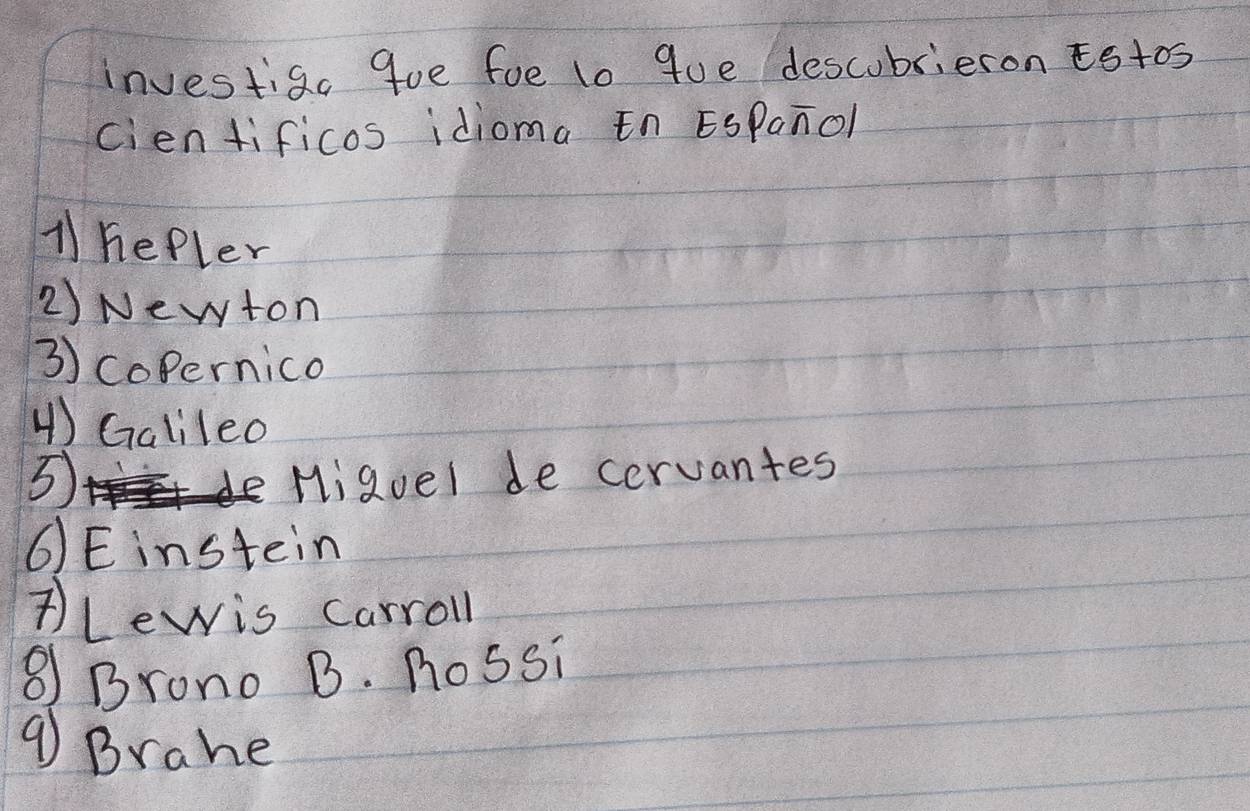 investiga que fue lo que descubrieron Estos
cientificos idioma En Español
1) Kepler
2) Newton
3) Copernico
4) Galileo
5) de Miguel de cervantes
6) Einstein
7) Lewis Carroll
8) Bruno B. Rossi
9) Brahe